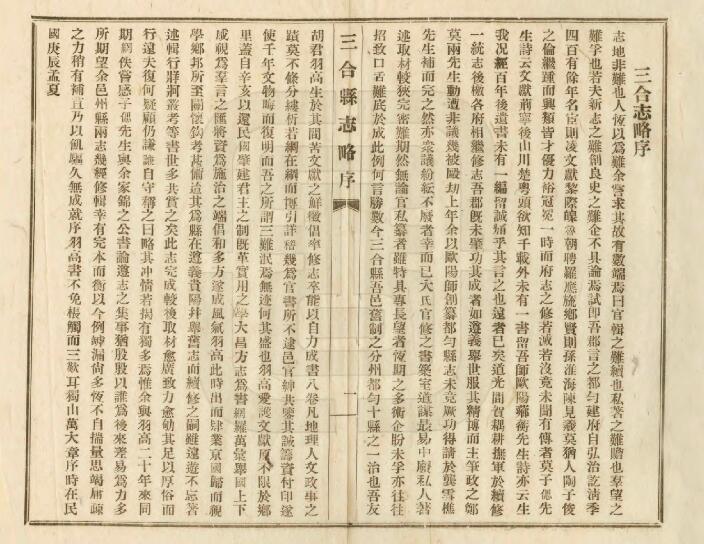 三合志略序
志地非難也人恆以爲難余嘗求其故有數端焉曰官輯之難續也私著之難贍也羣望之
難孚也若夫新志之難創良史之難企不具論焉試即吾郡言之都勻建府自弘治訖淸季
四百有餘年名宦則凌文獻黎際皞魯朝聘羅應旒鄉賢則孫淮海陳見羲莫猶人陶子俊
之倫繼踵而興類皆才優力裕冠冕一時而府志之修若滅若沒竟未聞有傳者莫子偲先
生詩云文獻荊寧後山川楚粵頭欲知千載外未有一書留吾師歐陽薙衡先生詩亦云生
我况經百年後遺書未有一編留誠痛乎其言之也遠者已矣道光間賀耦耕撫軍於續修
一統志後檄各府相繼修志吾郡旣未肇功其成者如遵義舉世服其精博而主筆政之鄭
莫兩先生動遭非議幾被毆劫上年余以歐陽師創纂都勻縣志未竟厥功得請於龔雪樵
先生補而完之然亦衆議紛紜不廢者幸而已大氐官修之書築室道謀最易中廢私人著
述取材較狹完密難期然無論官私纂者雖特具專長望者恆期之多術企盼未孚亦往往
招致口舌難底於成此例何言勝數今三合縣吾邑舊制之分州都勻十縣之一治也吾友
三合縣志略序
一
胡君羽高生於其間苦文獻之鮮徵倡率修志卒能以自力成書八卷凡地理人文政事之
蹟莫不條分縷析若網在綱而博引詳稽幾爲官書所不逮邑官紳共鑒其誠籌資付印遂
使千年文物晦而復明而吾之所謂三難泯焉無迹何其盛也羽高愛護文獻原不限於鄉
里蓋自辛亥以還民國肇建君主之制旣革實用之學大昌方志爲書網羅萬彙舉國上下
咸視爲羣言之匯將資爲施治之端倡和多方遂成風氣羽高此時出而肄業京國歸而視
學鄉邦所至關懷鈎考甚備這其爲縣在遵義貴陽幷舉舊志而續修之嗣雖遠遊不忘著
述輯行牂牁叢考等書世多共賞之矣此志完成較後取材愈廣致力愈勤其足以厚俗而
行遠夫復何疑顧仍謙謙自守稱之曰略其冲懷若揭有獨多焉惟余與羽高二十年來同
期網佚嘗感子偲先生與余家錦之公書論遵志之集事猶殷殷以誰爲後來差易爲力多
所期望余邑州縣兩志幾經修輯幸有完本而衡以今例罅漏尙多恆不自揣量思竭庸疎
之力稍有補直乃以飢驅久無成就序羽高書不免根觸而三歎耳獨山萬大章序時在民
國庚辰孟夏